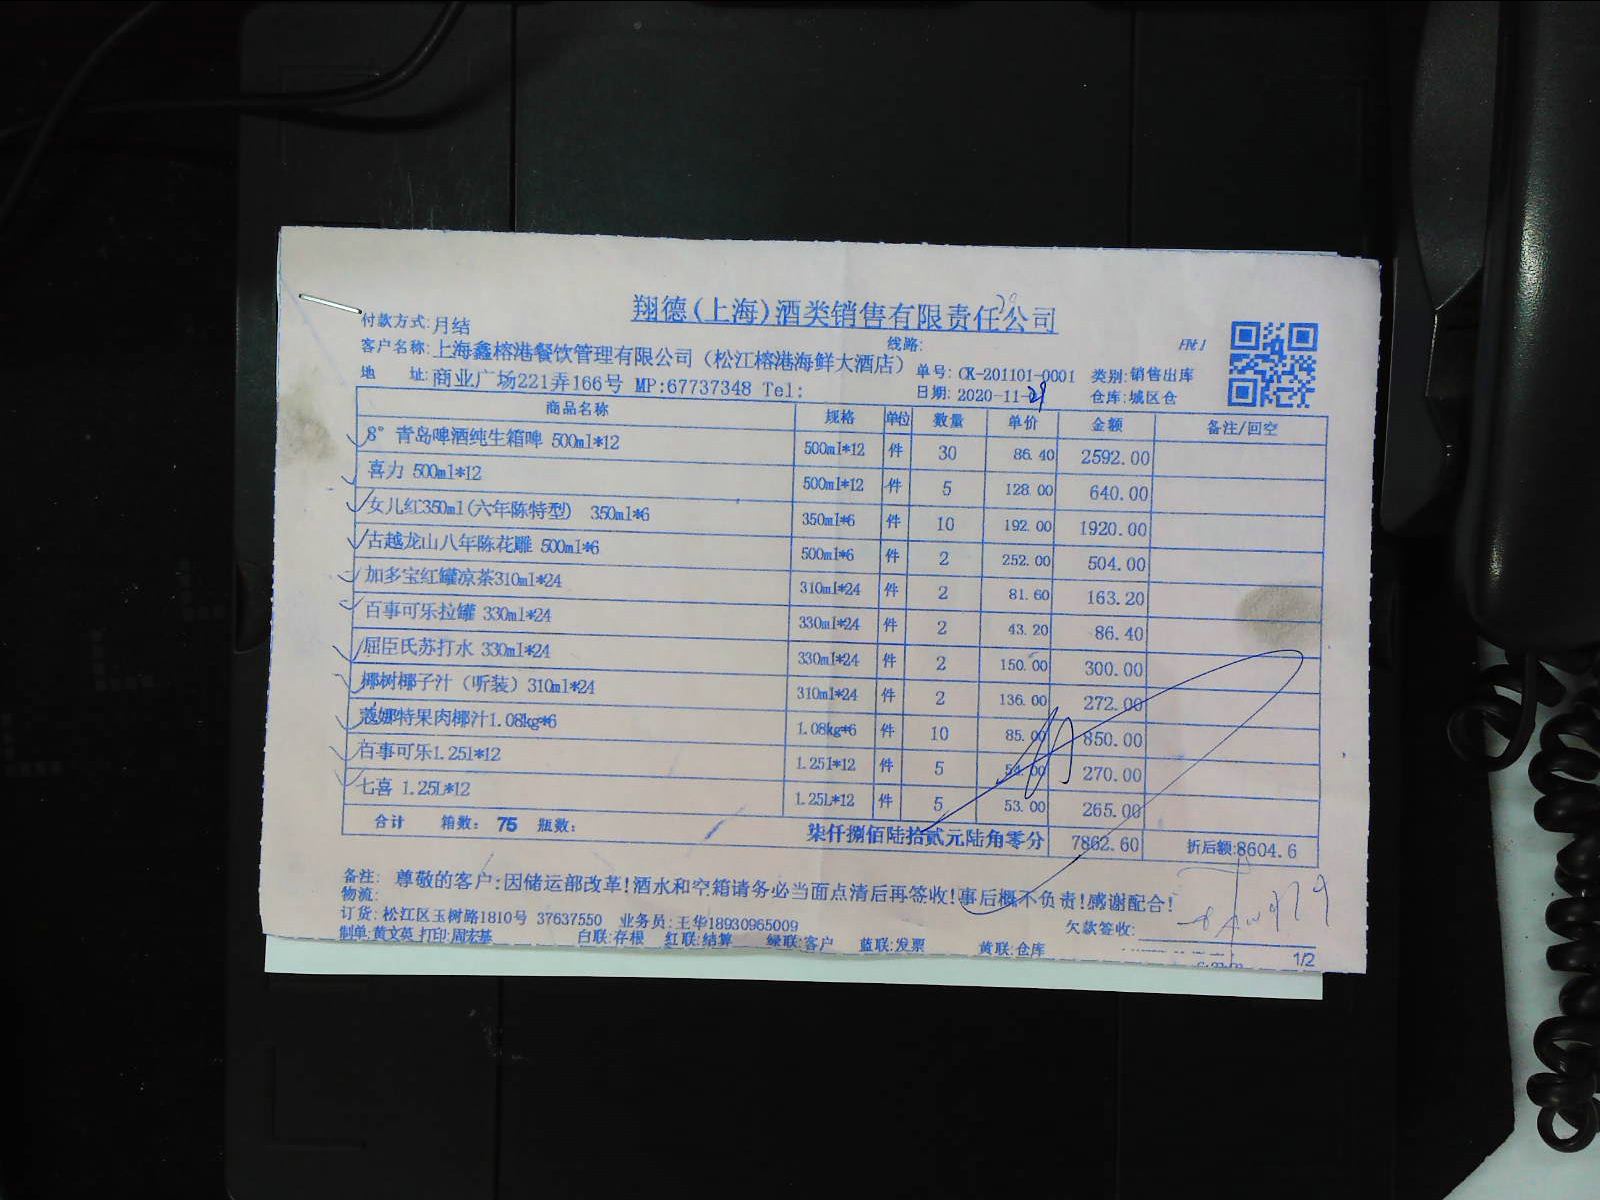 翔德(上海)酒类销售有限责任公司
付款方式:月结 线路:
客户名称:上海鑫榕港餐饮管理有限公司（松江榕港海鲜大酒店） 单号: CK-201101-0001 类别:销售出库
地 址:商业广场221弄166号 MP:67737348 Tel: 日期: 2020-11-29 仓库:城区仓
商品名称 规格 单位 数量 单价 金额 备注/回空
8° 青岛啤酒纯生箱啤 500ml*12 500ml*12 件 30 86.40 2592.00
喜力 500ml*12 500ml*12 件 5 128.00 640.00
女儿红350ml(六年陈特型) 350ml*6 350ml*6 件 10 192.00 1920.00
古越龙山八年陈花雕 500ml*6 500ml*6 件 2 252.00 504.00
加多宝红罐凉茶310ml*24 310ml*24 件 2 81.60 163.20
百事可乐拉罐 330ml*24 330ml*24 件 2 43.20 86.40
屈臣氏苏打水 330ml*24 330ml*24 件 2 150.00 300.00
椰树椰子汁（听装）310ml*24 310ml*24 件 2 136.00 272.00
蔻娜特果肉椰汁1.08kg*6 1.08kg*6 件 10 85.00 850.00
百事可乐1.25l*12 1.25l*12 件 5 54.00 270.00
七喜 1.25L*12 1.25L*12 件 5 53.00 265.00
合计 箱数: 75 瓶数: 柒仟捌佰陆拾贰元陆角零分 7862.60 折后额:8604.6
备注: 尊敬的客户:因储运部改革!酒水和空箱请务必当面点清后再签收!事后概不负责!感谢配合!
物流:
订货: 松江区玉树路1810号 37637550 业务员:王华18930965009 欠款签收:
制单:黄文英 打印:周宏基 白联:存根 红联:结算 绿联:客户 蓝联:发票 黄联:仓库 1/2